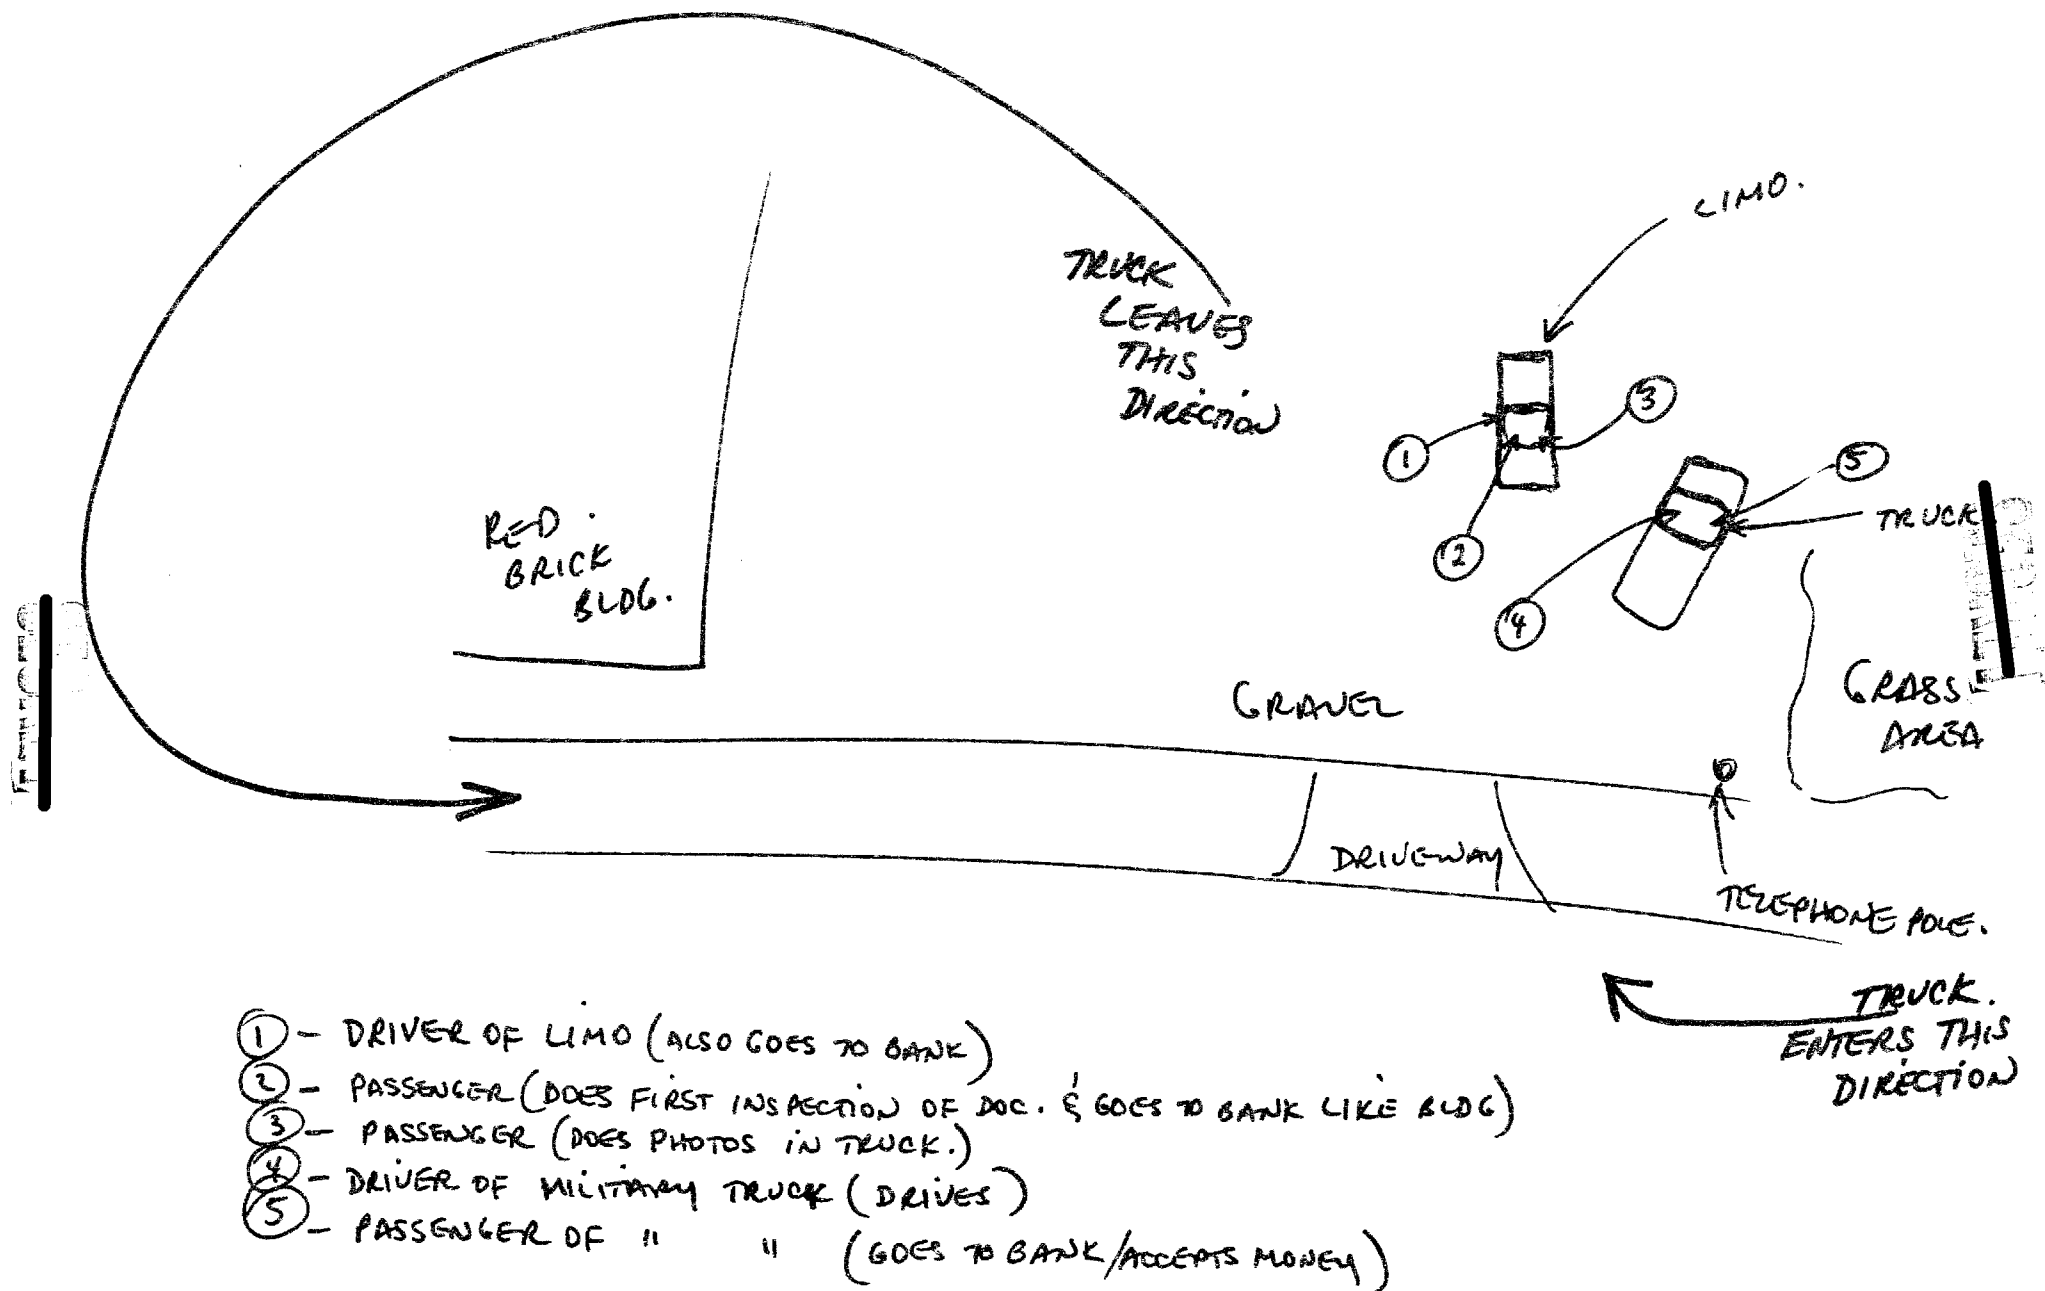 LIMO.
TRUCK
LEAVES
THIS
DIRECTION
3
1
5
2
TRUCK
4
RED
BRICK
BLDG.
GRASS
AREA
GRAVEL
DRIVEWAY
TELEPHONE POLE.
TRUCK.
ENTERS THIS
DIRECTION
1 - DRIVER OF LIMO (ALSO GOES TO BANK)
2 - PASSENGER (DOES FIRST INSPECTION OF DOC. & GOES TO BANK LIKE BLDG)
3 - PASSENGER (DOES PHOTOS IN TRUCK.)
4 - DRIVER OF MILITARY TRUCK (DRIVES)
5 - PASSENGER OF " " (GOES TO BANK/ACCEPTS MONEY)